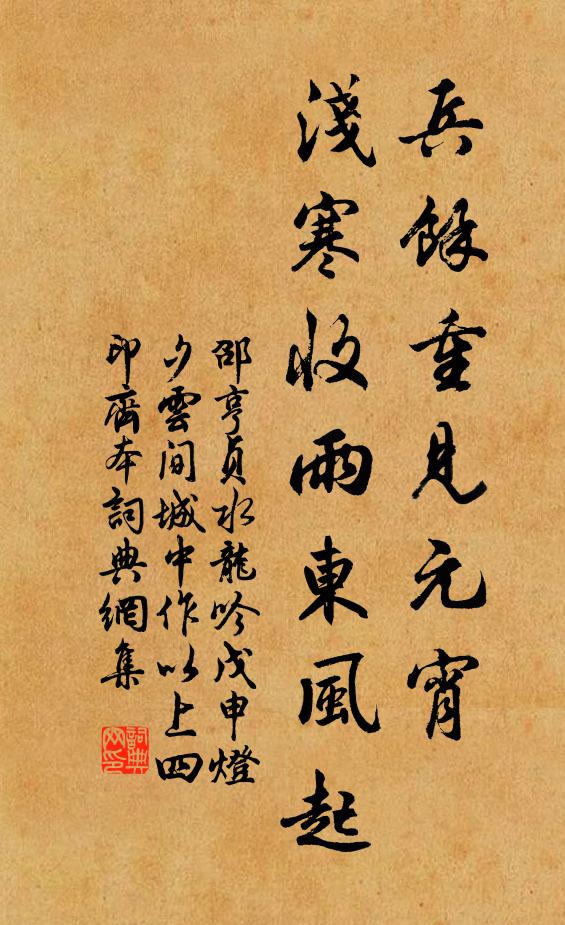 兵餘重見元宵
淺寒收雨東風起
邵亨貞水龍吟戊申燈
夕雲間城中作以上四
印齋本詞典網集
詞典网印